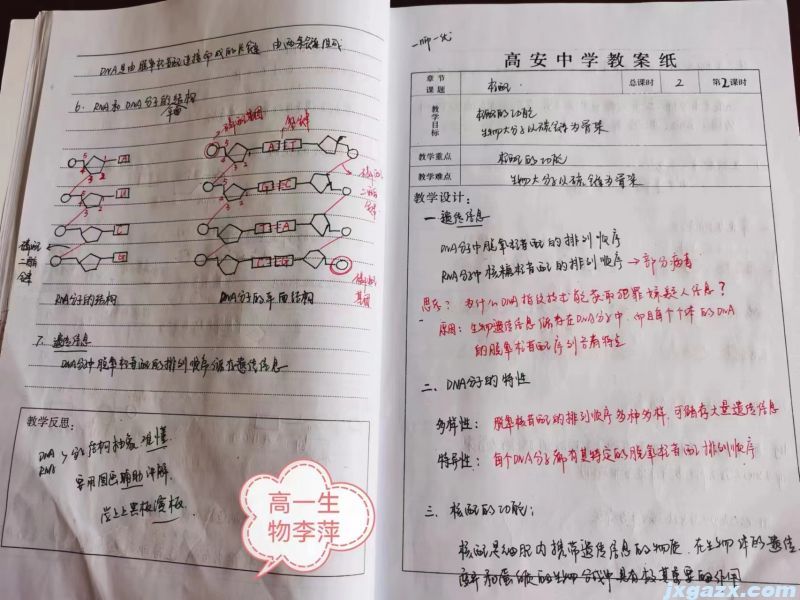 DNA是由脱氧核苷酸连接而成的长链 由两条链组成
6. RNA和DNA分子的结构
平面
游离的磷酸基团
氢键
A
A T
U
G C
C
T A
G
C G
磷酸
二酯
键
磷酸
二酯
键
RNA分子的结构
DNA分子的平面结构
7. 遗传信息
DNA分子中脱氧核苷酸的排列顺序储存着遗传信息
教学反思:
DNA
RNA
分子结构抽象难懂.
要用图画辅助讲解
高一生
物李萍
一师一优
高安中学教案纸
章节
课题
核酸
总课时
2
第2课时
教学目标
核酸的功能
生物大分子以碳链为骨架
教学重点
核酸的功能
教学难点
生物大分子以碳链为骨架
教学设计:
一. 遗传信息
DNA分子中脱氧核苷酸的排列顺序
RNA分子中核糖核苷酸的排列顺序→部分病毒
思考? 为什么DNA指纹技术能获取犯罪嫌疑人信息?
原因: 生物遗传信息储存在DNA分子中, 而且每个个体的DNA
的脱氧核苷酸序列各有特点
二、DNA分子的特性
多样性: 脱氧核苷酸的排列顺序多种多样, 可储存大量遗传信息
特异性: 每个DNA分子都有其特定的脱氧核苷酸排列顺序
三. 核酸的功能:
核酸是细胞内携带遗传信息的物质, 在生物体的遗传
变异和蛋白质的生物合成中具有极其重要的作用
jxgazx.com